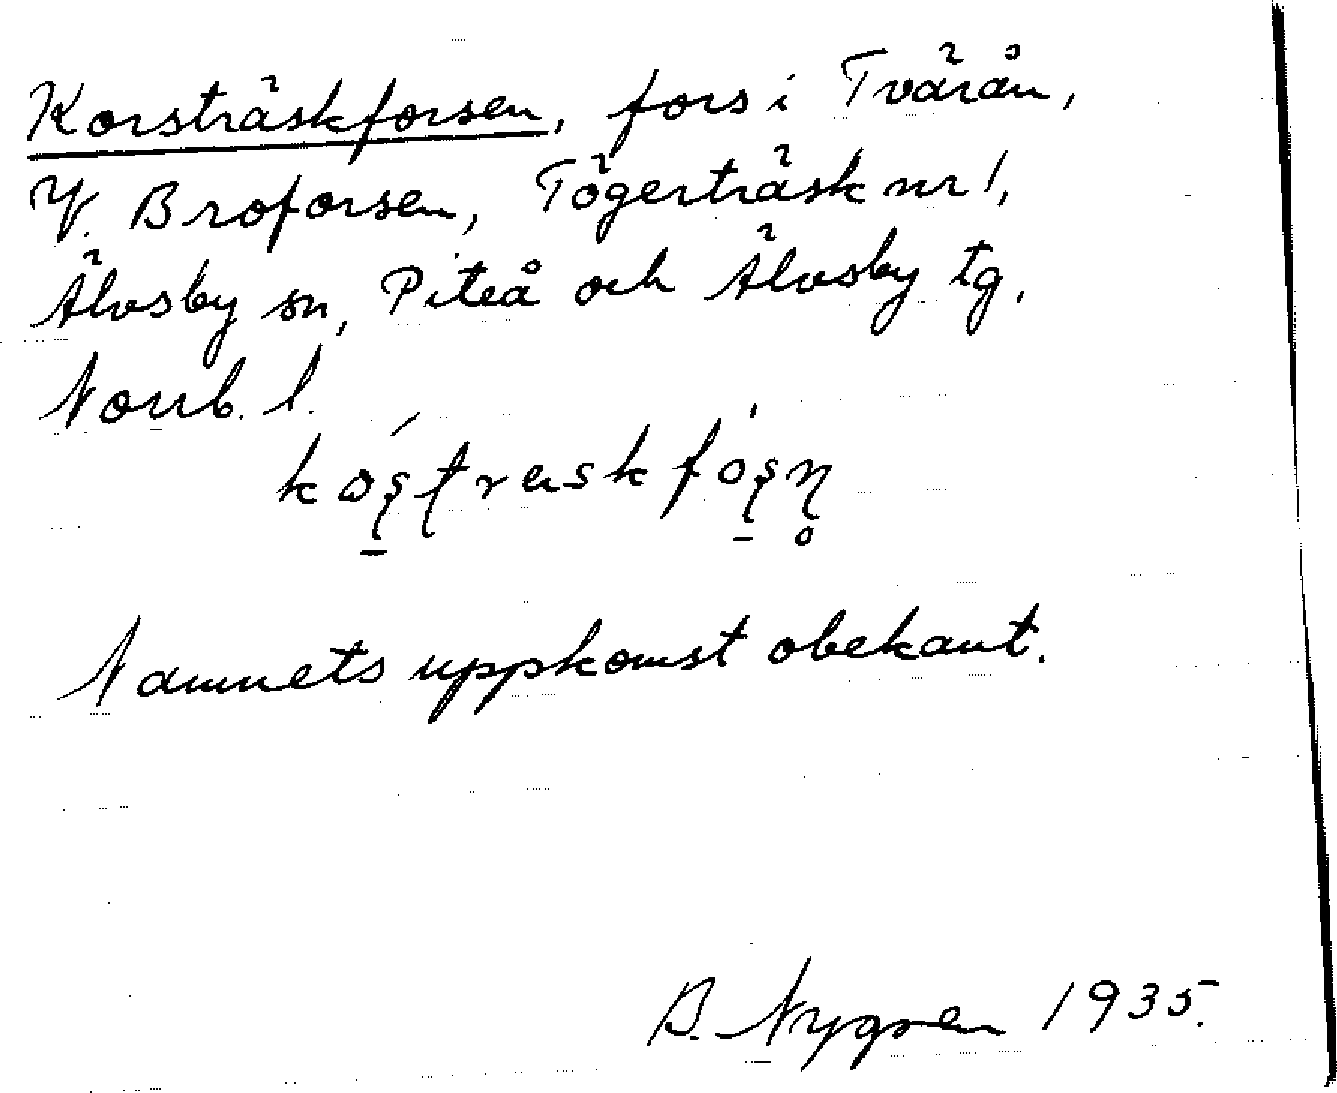 Korsträskforsen, fors i Tvärån,
V. Broforsen, Tögerträsk nr 1,
Älvsby sn, Piteå och Älvsby tg,
Norrb. l.
Namnets uppkomst obekant.
B. Nygren 1935.